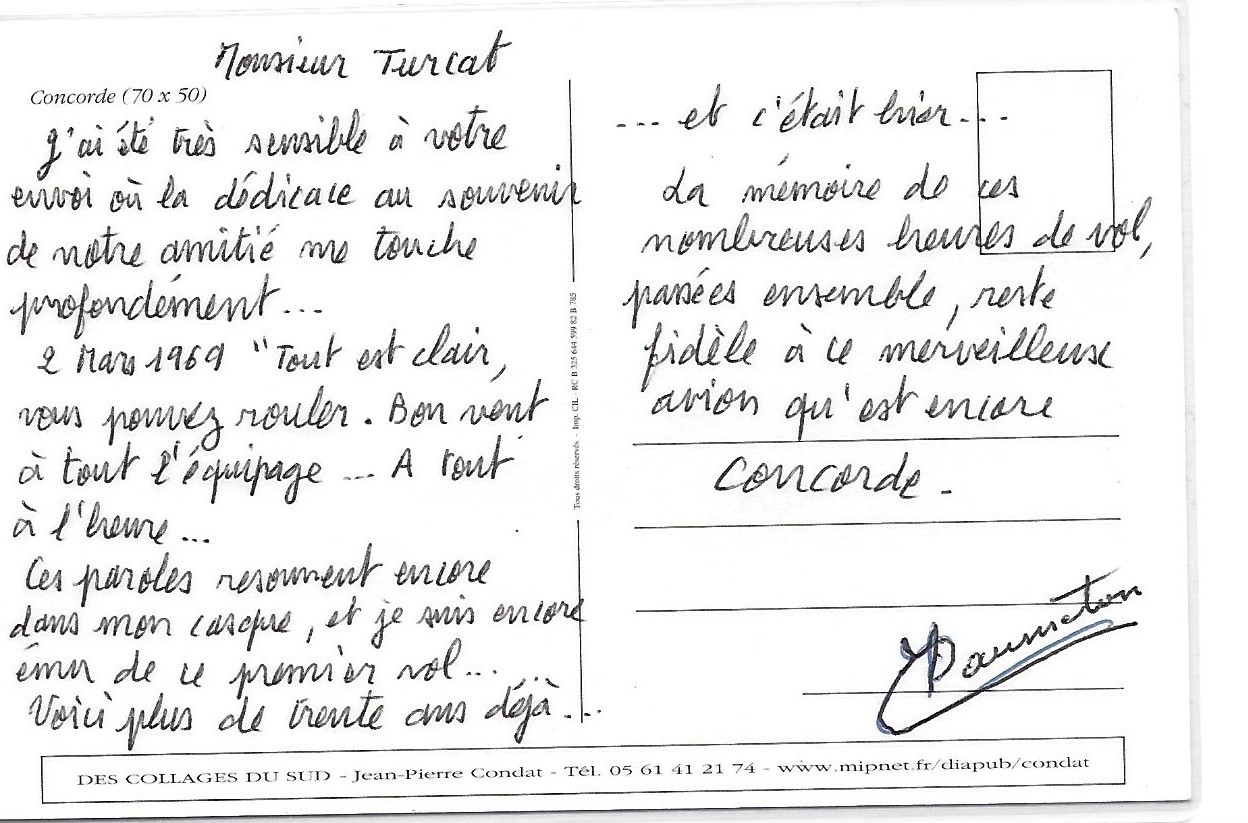 Monsieur Turcat
Concorde (70 x 50)
J'ai été très sensible à votre
envoi où la dédicace au souvenir
de notre amitié me touche
profondément...
2 Mars 1969 "Tout est clair,
vous pouvez rouler. Bon vent
à tout l'équipage ... A tout
à l'heure ...
Ces paroles resonnent encore
dans mon casque, et je suis encore
ému de ce premier vol...
Voici plus de trente ans déjà...
Tous droits réservés - Imp. CIL - RC B 325 644 599 82 B 785
... et c'était hier...
La mémoire de ces
nombreuses heures de vol,
passées ensemble, reste
fidèle à ce merveilleux
avion qu'est encore
Concorde.
DES COLLAGES DU SUD - Jean-Pierre Condat - Tél. 05 61 41 21 74 - www.mipnet.fr/diapub/condat